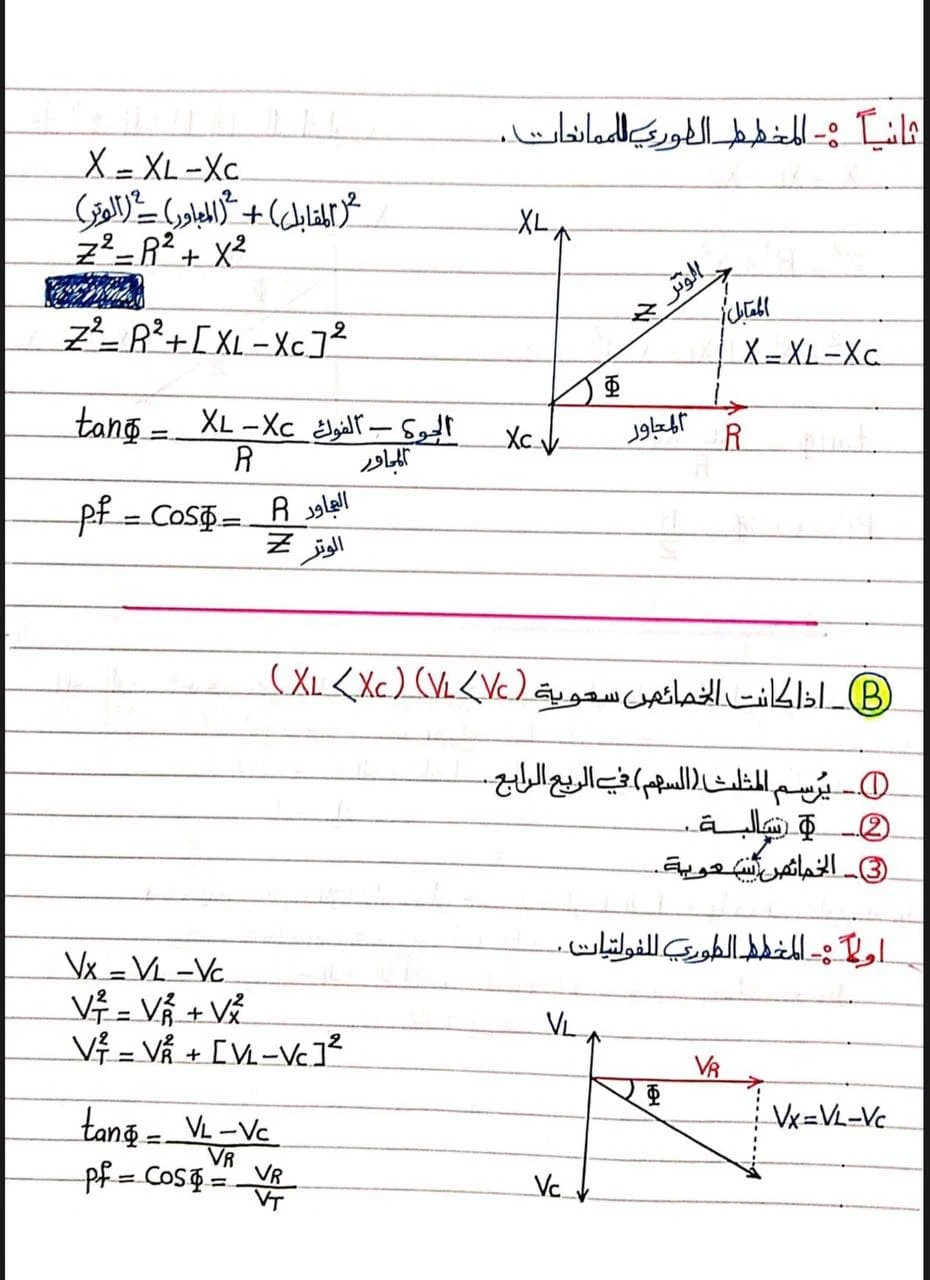 ثانياً :- المخطط الطوري للممانعات .
X = XL - XC
(الوتر)² = (المجاور)² + (المقابل)²
Z² = R² + X²
Z² = R² + [XL - XC]²
tanΦ = XL - XC / R الجوى - الفوك / المجاور
pf = CosΦ = R / Z المجاور / الوتر
XL
الوتر
Z
المقابل
X = XL - XC
Φ
XC
المجاور
R
B - اذا كانت الخصائص سعوية (VL < VC) (XL < XC)
1 - يُرسم المثلث (السهم) في الربع الرابع .
2 - Φ سالبة .
3 - الخصائص سعوية .
اولاً :- المخطط الطوري للفولتيات .
VX = VL - VC
VT² = VR² + VX²
VT² = VR² + [VL - VC]²
tanΦ = VL - VC / VR
pf = CosΦ = VR / VT
VL
VR
Φ
VX = VL - VC
VC